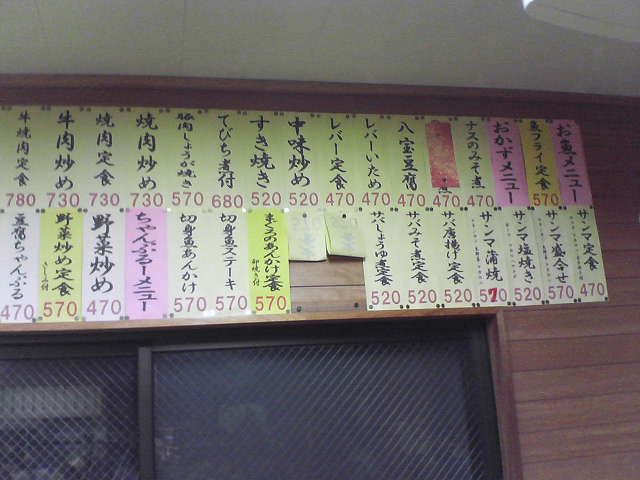 お魚メニュー
魚フライ定食 570
おかずメニュー
ナスのみそ煮 470
煮 470
八宝豆腐 470
レバーいため 470
レバー定食 470
中味炒め 520
すき焼き 520
てびち煮付 680
豚肉しょうが焼き 570
焼肉炒め 730
焼肉定食 730
牛肉炒め 730
牛焼肉定食 780
サンマ定食 470
サンマ盛合せ 570
サンマ塩焼き 520
サンマ蒲焼 570
サバ唐揚げ定食 520
サバみそ煮定食 520
サバしょうゆ煮定食 520
まぐろのあんかけ定食 卵焼き付 570
切身魚ステーキ 570
切身魚あんかけ 570
ちゃんぷるーメニュー
野菜炒め 470
野菜炒め定食 さしみ付 570
豆腐ちゃんぷる 470